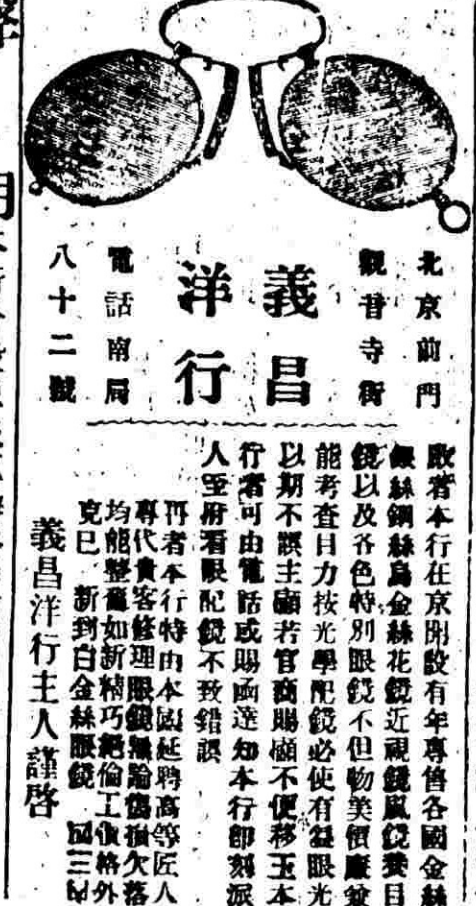 北京前門
觀音寺街
義昌
洋行
電話南局
八十二號
敬者本行在京開設有年專售各國金絲
銀絲鋼絲烏金絲花鏡近視鏡風鏡養目
鏡以及各色特別眼鏡不但物美價廉並
能考查目力按光學配鏡必使有益眼光
以期不誤主顧若官商賜顧不便移玉本
行者可由電話或賜函達知本行即刻派
人至府看眼配鏡不致錯誤
再者本行特由本國延聘高等匠人
專代貴客修理眼鏡無論傷損欠落
均能整舊如新精巧絕倫工價格外
克已 新到白金絲眼鏡
義昌洋行主人謹啓